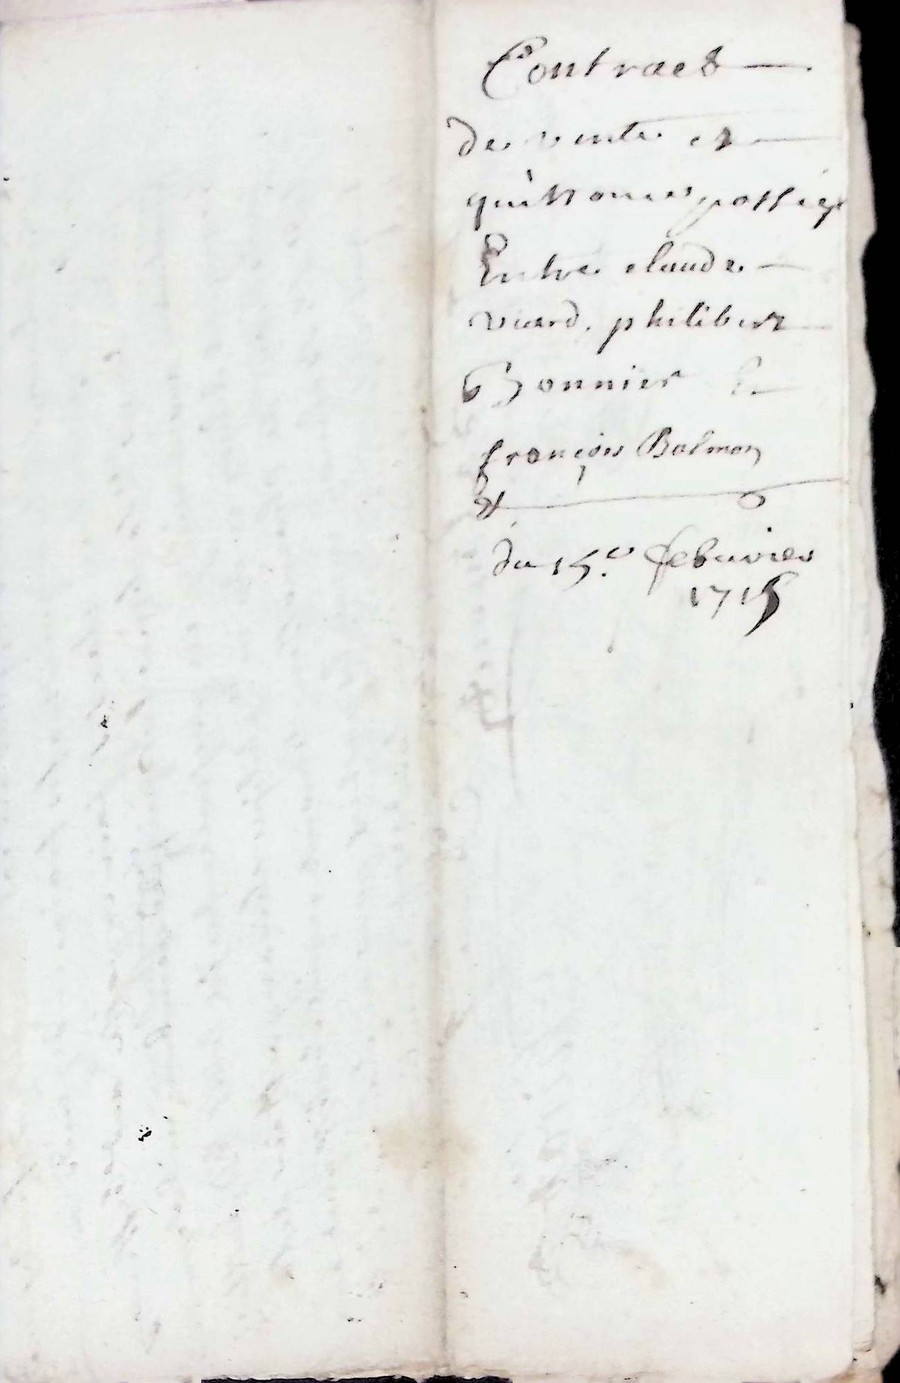 Contract
de vente et
quittances passéz
Entre claude
viard. philibert
Bonnier &
françois Balmon
du 15.e febuvrier
1715